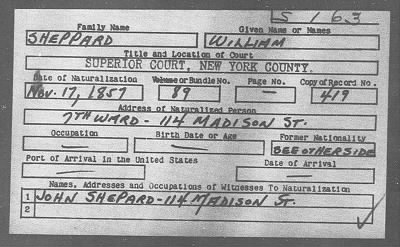 S 163
Family Name Given Name or Names
SHEPPARD WILLIAM
Title and Location of Court
SUPERIOR COURT, NEW YORK COUNTY.
Date of Naturalization Volume or Bundle No. Page No. Copy of Record No.
Nov. 17, 1857 89 — 419
Address of Naturalized Person
7TH WARD - 114 MADISON ST.
Occupation Birth Date or Age Former Nationality
— — SEE OTHER SIDE
Port of Arrival in the United States Date of Arrival
— —
Names, Addresses and Occupations of Witnesses To Naturalization
1 JOHN SHEPARD - 114 MADISON ST.
2